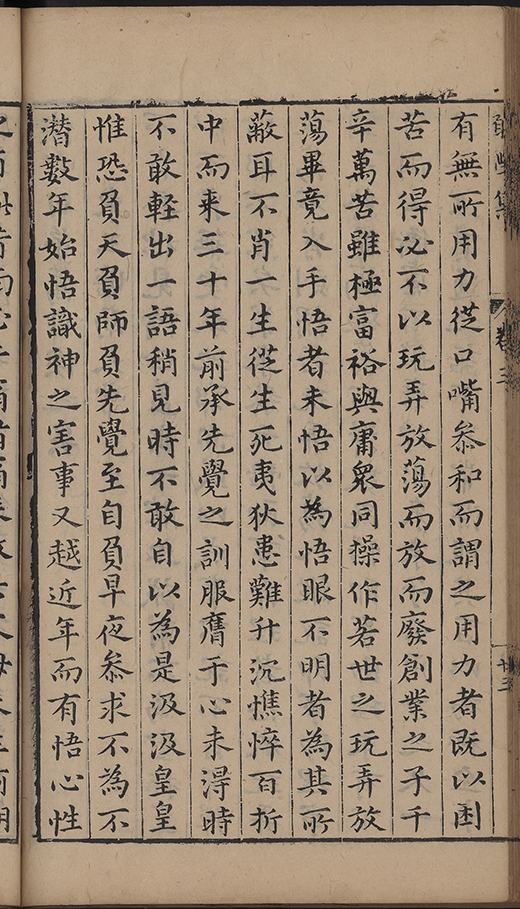 卷三
廿三
有無所用力從口嘴叅和而謂之用力者既以困
苦而得必不以玩弄放蕩而放而廢創業之子千
辛萬苦雖極富裕與庸衆同操作若世之玩弄放
蕩畢竟入手悟者未悟以為悟眼不明者為其所
蔽耳不肖一生從生死夷狄患難升沉憔悴百折
中而来三十年前承先覺之訓服膺于心未得時
不敢輕出一語稍見時不敢自以為是汲汲皇皇
惟恐負天負師負先覺至自負早夜叅求不為不
潛數年始悟識神之害事又越近年而有悟心性